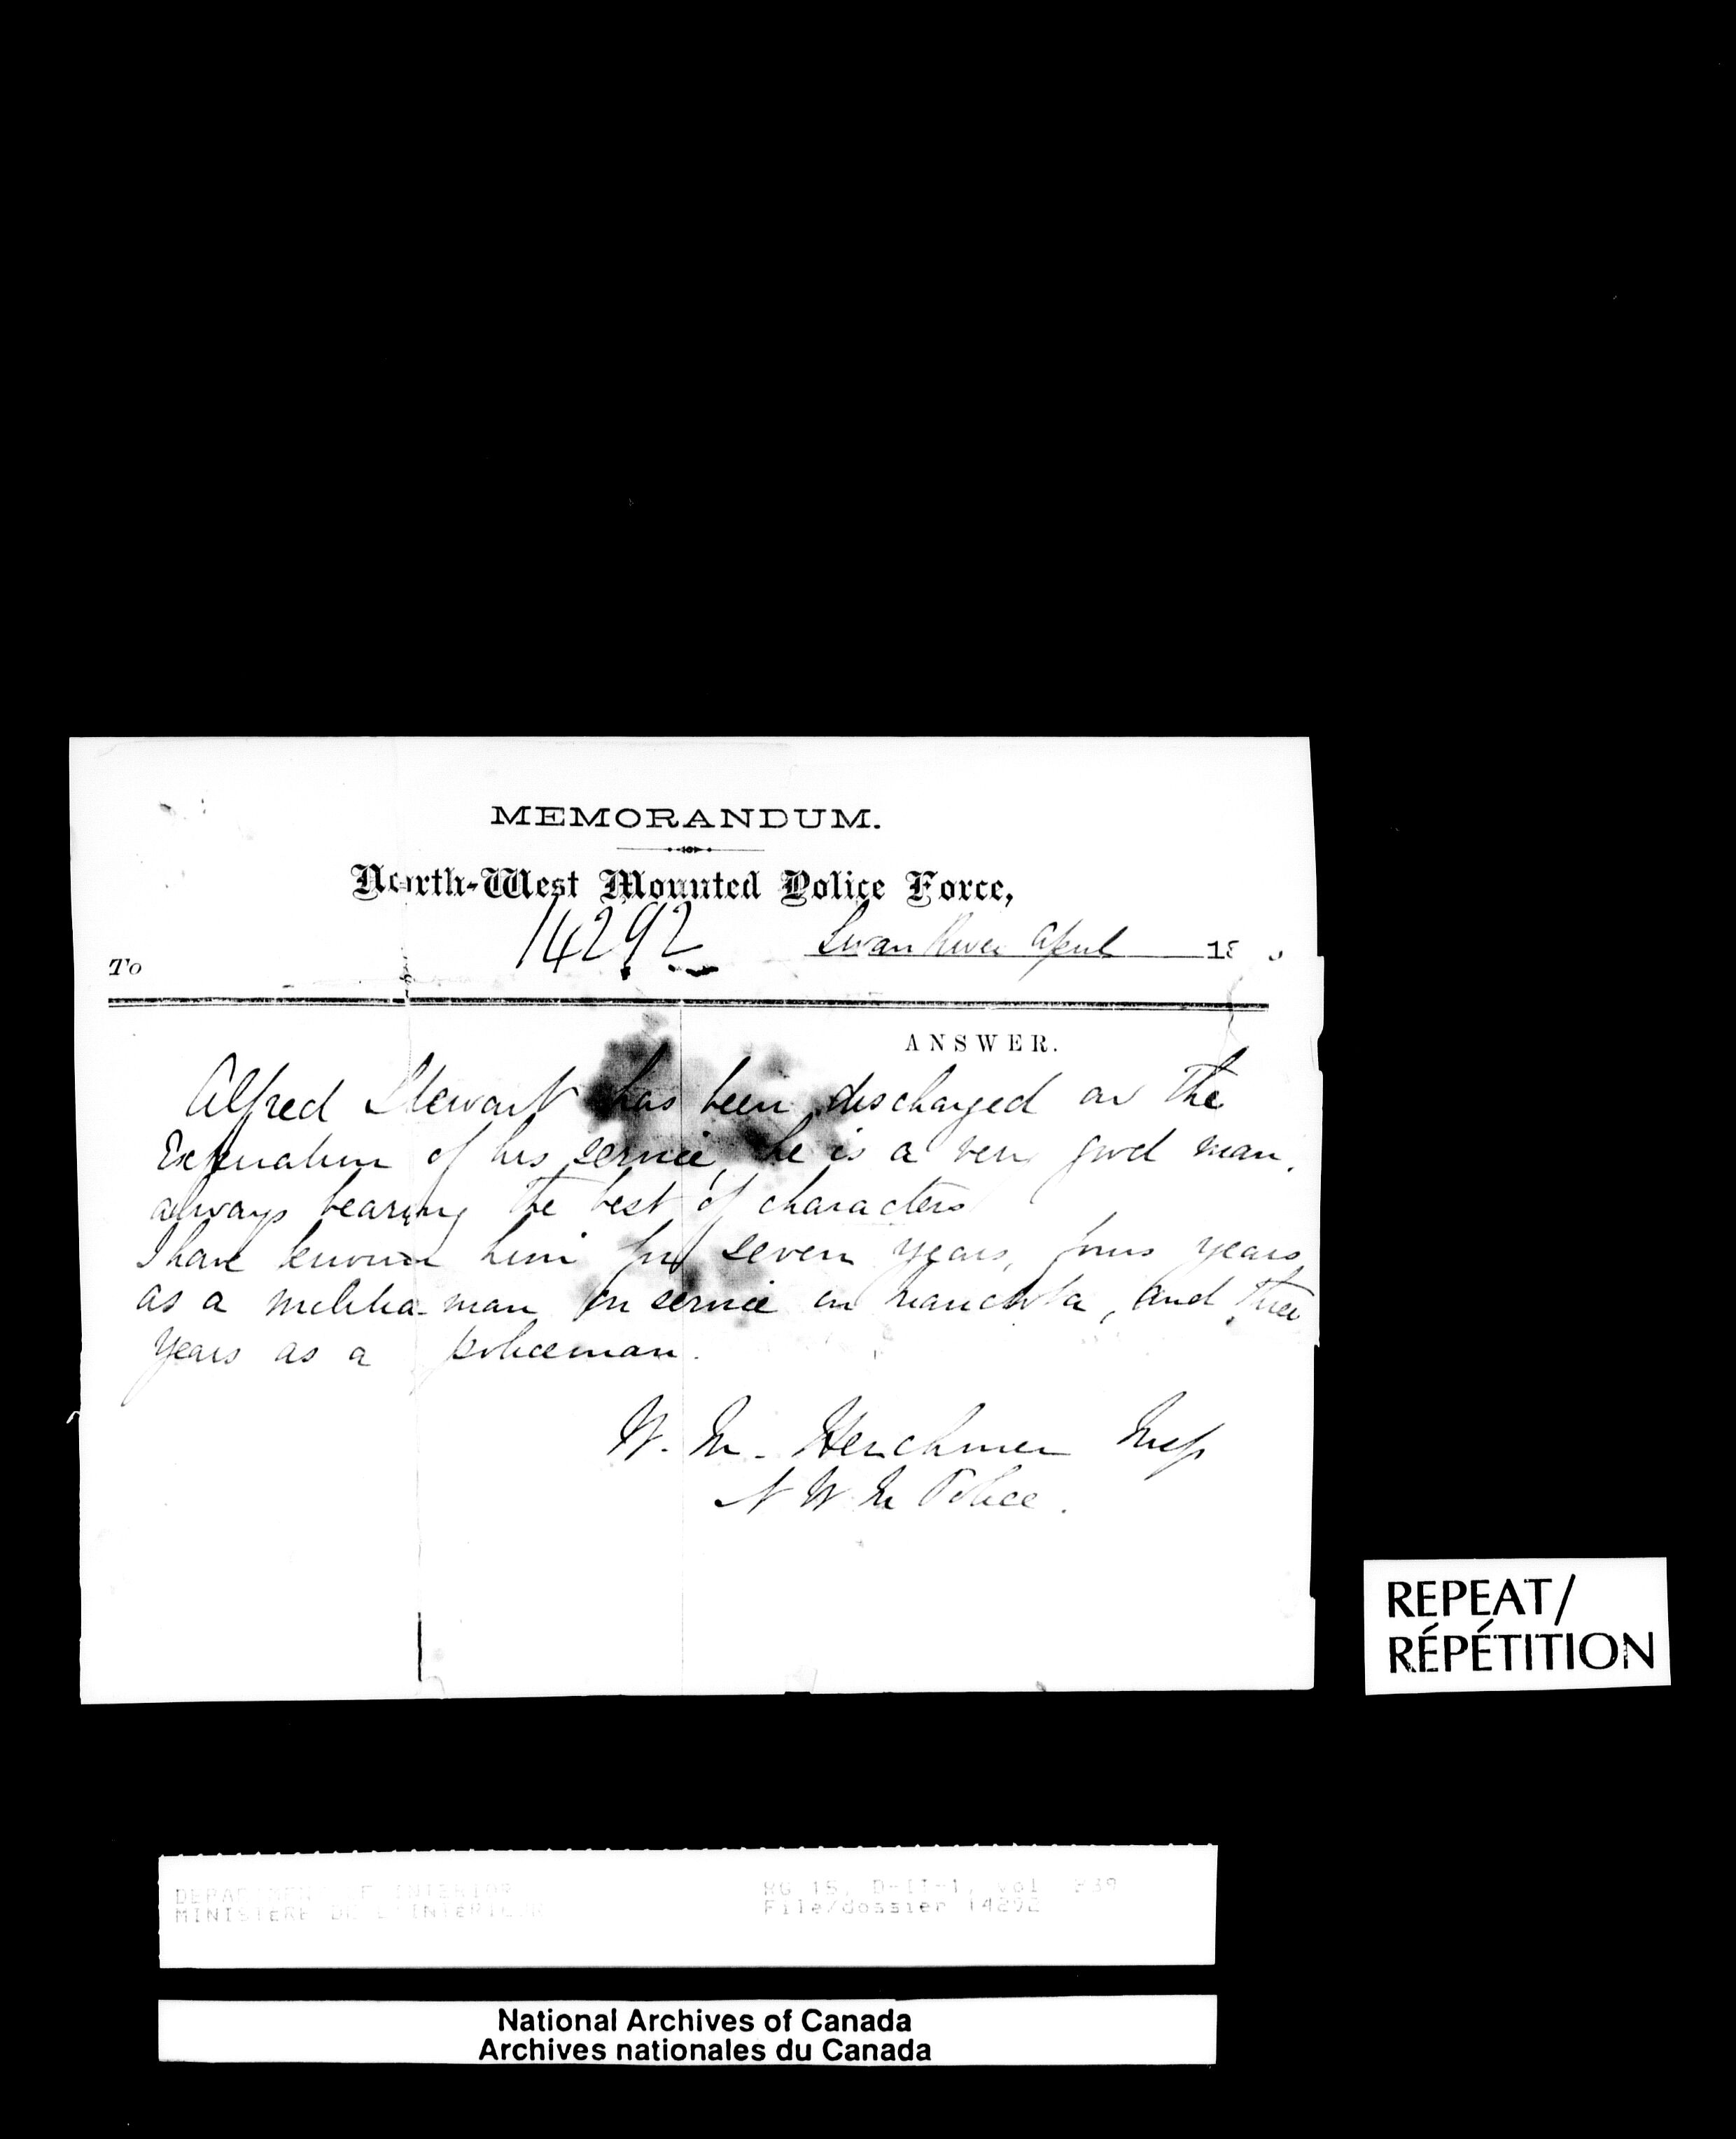 MEMORANDUM.
North-West Mounted Police Force,
14292
Swan River April 18
To
ANSWER.
Alfred Stewart has been discharged on the
Expiration of his service, he is a very good man,
always bearing the best of characters
I have known him for seven years, four years
as a militia man on service in Manitoba, and three
years as a policeman.
W. M. Herchmer Insp
N W M Police.
REPEAT/
RÉPÉTITION
DEPARTMENT OF INTERIOR
MINISTERE DE L'INTERIEUR
RG 15, D-II-1, vol 
File/dossier 14292
National Archives of Canada
Archives nationales du Canada